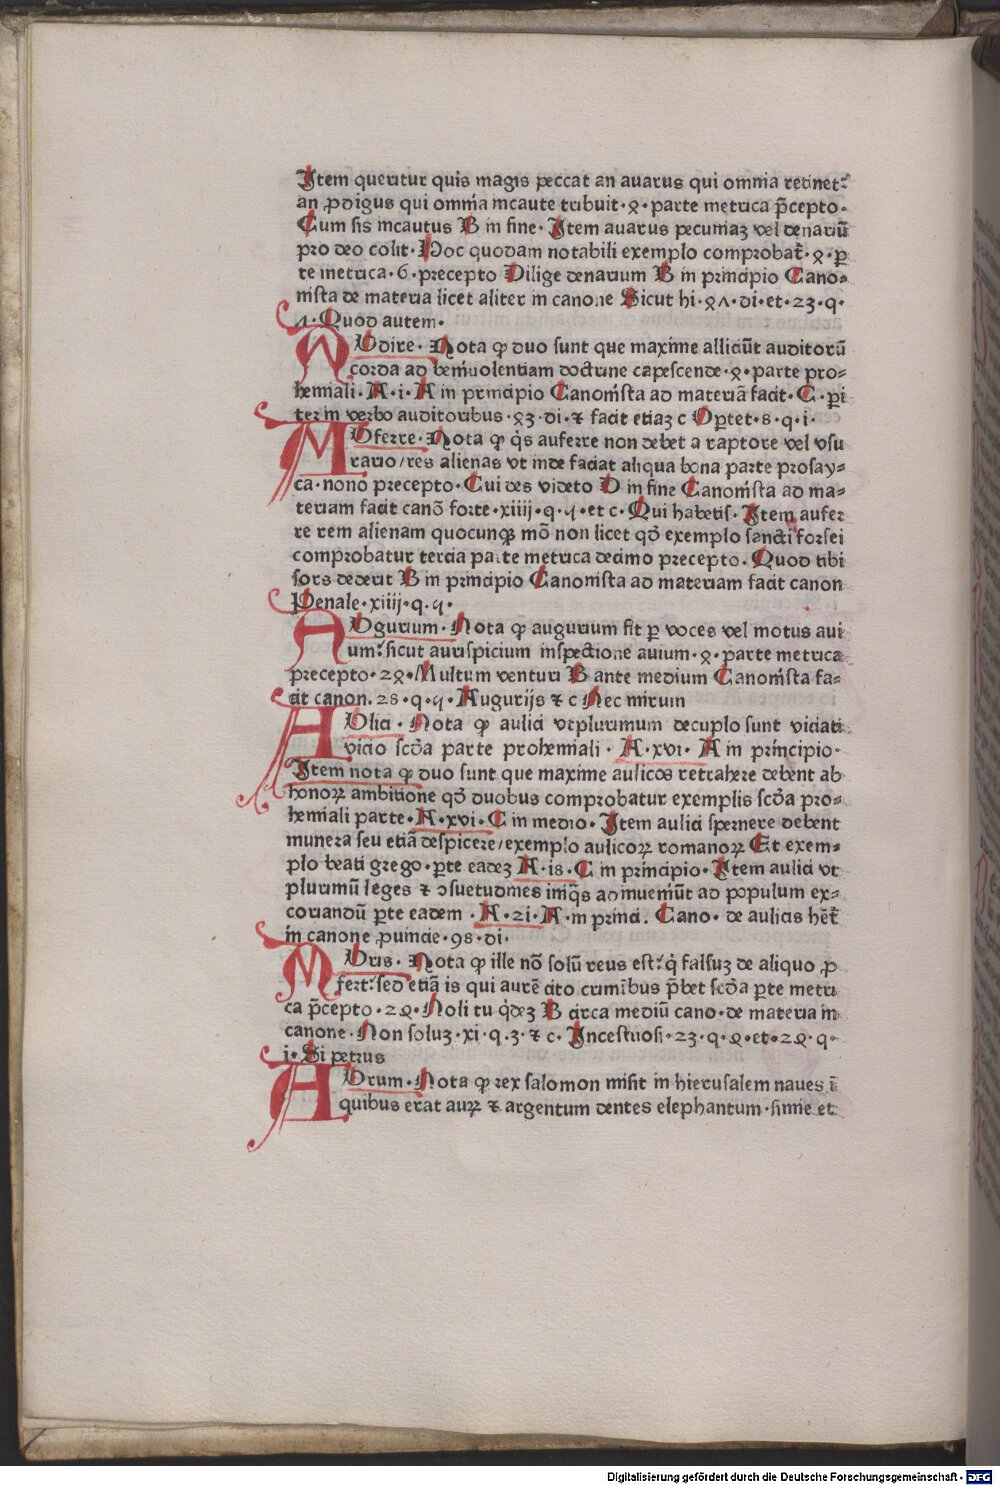 Item queritur quis magis peccat an auarus qui omnia retinet:
an ꝓdigus qui omnia incaute tribuit · ꝝ · parte metrica p̄cepto ·
Cum sis incautus B in fine · Item auarus pecuniaꝫ vel denariū
pro deo colit · Hoc quodam notabili exemplo comprobat̄ · ꝝ · ꝑ
te metrica · 6 · precepto Dilige denarium B in principio Cano⸗
nista de materia licet aliter in canone Sicut hi · ꝝ 1 · di · et · 23 · q ·
1 · Quod autem ·
AUdire · Nota ꝙ duo sunt que maxime alliciūt auditorū
corda ad beniuolentiam doctrine capescende · ꝝ · parte pro⸗
hemiali · A · i · A in principio Canonista ad materiā facit · C · ꝑi
ter in verbo auditoribus · ꝝ3 · di · ⁊ facit etiaꝫ c Oꝑtet · 8 · q · i ·
AUferre · Nota ꝙ q̄s auferre non debet a raptore vel vsu
rario / res alienas vt inde faciat aliqua bona parte prosay⸗
ca · nono precepto · Cui des videto D in fine Canonista ad ma⸗
teriam facit canō forte · xiiij · q · 5 · et c · Qui habetis · Item aufer
re rem alienam quocunqꝫ mō non licet qđ exemplo sancti forsei
comprobatur tercia parte metrica decimo precepto · Quod tibi
sors dederit B in principio Canonista ad materiam facit canon
Penale · xiiij · q · 5 ·
AUgurium · Nota ꝙ augurium fit ꝑ voces vel motus aui
um: sicut auruspicium inspectione auium · ꝝ · parte metrica
precepto · 2ꝝ · Multum venturi B ante medium Canonista fa⸗
cit canon. 28 · q · 5 · Augurijs ⁊ c Nec mirum
AUlici · Nota ꝙ aulici vtplurimum decuplo sunt viciati
vicio scđa parte prohemiali · A · xvi · A in principio ·
Item nota ꝙ duo sunt que maxime aulicos retrahere debent ab
honoꝝ ambitione qđ duobus comprobatur exemplis scđa pro⸗
hemiali parte · A · xvi · C in medio · Item aulici spernere debent
munera seu etiā despicere / exemplo aulicoꝝ romanoꝝ Et exem⸗
plo beati grego · ꝑte eadeꝫ A · 18 · C in principio · Item aulici vt
plurimū leges ⁊ ꝯsuetudines iniq̄s adinueniūt ad populum ex⸗
coriandū ꝑte eadem · A · 21 · A · in princi. Cano · de aulicis het̄
in canone ꝓuincie · 98 · di ·
AUris · Nota ꝙ ille nō solū reus est: q̇ falsuꝫ de aliquo ꝓ
fert: sed etiā is qui aurē cito criminibus p̄bet scđa ꝑte metri
ca p̄cepto · 2ꝝ · Noli tu q̇deꝫ B circa mediū cano · de materia in
canone · Non soluꝫ · xi · q · 3 · ⁊ c · Incestuosi · 23 · q · ꝝ · et · 2ꝝ · q ·
i · Si petrus
AUrum · Nota ꝙ rex salomon misit in hierusalem naues ī
quibus erat auꝝ ⁊ argentum dentes elephantum · simie et
Digitalisierung gefördert durch die Deutsche Forschungsgemeinschaft · DFG